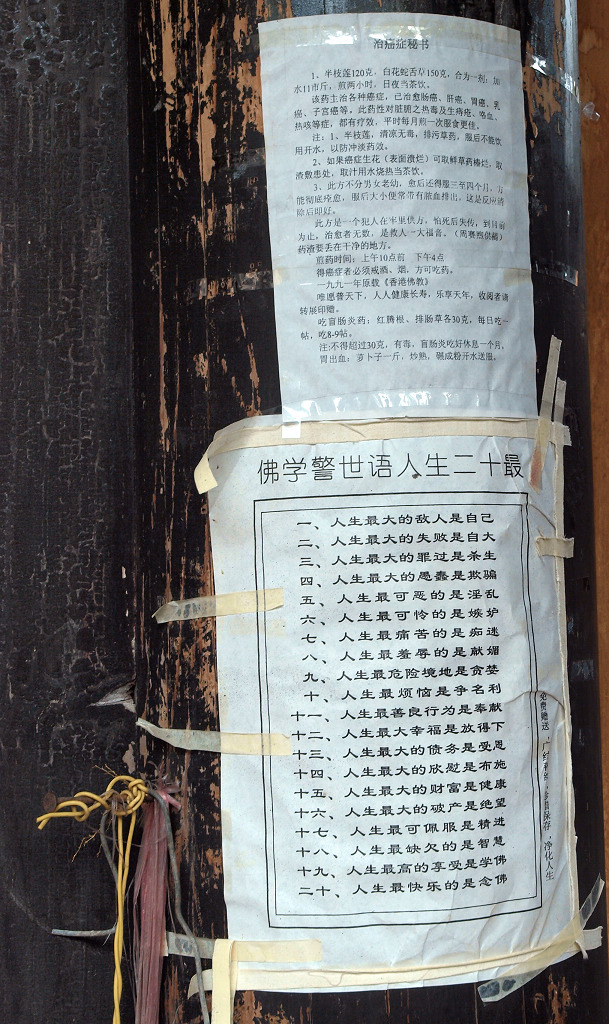 治癌症秘书
1、半枝莲120克，白花蛇舌草150克，合为一剂：加
水11市斤，煎两小时，日夜当茶饮。
该药主治各种癌症，已治愈肠癌、肝癌、胃癌、乳
癌、子宫癌等，此药性对脏腑之热毒及生痔疮、咯血、
热咳等症，都有疗效，平时每月煎一次服食更佳。
注：1、半枝莲，清凉无毒，排污草药，服后不能饮
用开水，以防冲淡药效。
2、如果癌症生花（表面溃烂）可取鲜草药榛烂，取
渣敷患处，取汁用水烧热当茶饮。
3、此方不分男女老幼，愈后还得服三至四个月，方
能彻底痊愈，服后大小便常带有脓血排出，这是反应清
除后即好。
此方是一个犯人在牢里供方，怕死后失传，到目前
为止，治愈者无数，是救人一大福音。（周赛然供稿）
药渣要丢在干净的地方。
煎药时间：上午10点前 下午4点
得癌症者必须戒酒、烟，方可吃药。
一九九一年原载《香港佛教》
唯愿普天下，人人健康长寿，乐享天年，收阅者请
转展印赠。
吃盲肠炎药：红腾根、排肠草各30克，每日吃一
帖，吃8-9帖。
注:不得超过30克，有毒，盲肠炎吃好休息一个月。
胃出血：萝卜子一斤，炒熟，碾成粉开水送服。
佛学警世语人生二十最
一、人生最大的敌人是自己
二、人生最大的失败是自大
三、人生最大的罪过是杀生
四、人生最大的愚蠢是欺骗
五、人生最可恶的是淫乱
六、人生最可怜的是嫉妒
七、人生最痛苦的是痴迷
八、人生最羞辱的是献媚
九、人生最危险境地是贪婪
十、人生最烦恼是争名利
十一、人生最善良行为是奉献
十二、人生最大幸福是放得下
十三、人生最大的债务是受恩
十四、人生最大的欣慰是布施
十五、人生最大的财富是健康
十六、人生最大的破产是绝望
十七、人生最可佩服是精进
十八、人生最缺欠的是智慧
十九、人生最高的享受是学佛
二十、人生最快乐的是念佛
免费赠送，广 保存，净化人生